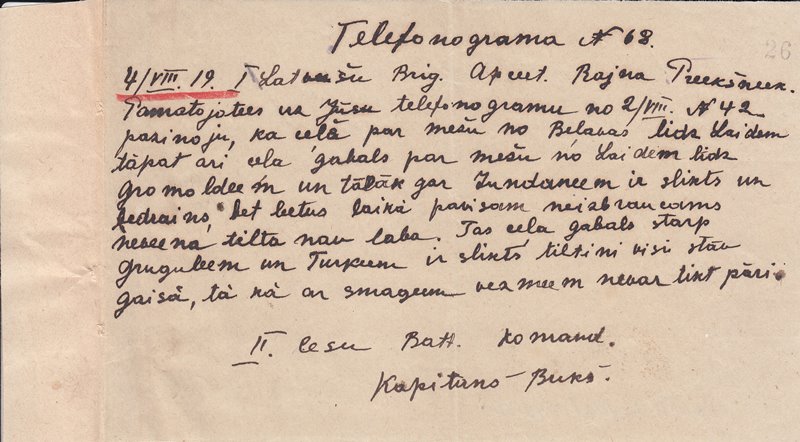 Telefonograma № 68.
26
4/VIII. 19 I Latveešu Brig. Apcet. Rajna Preekšneek.
Pamatojotees uz Jūsu telefonogramu no 2/VIII. № 42
paziņoju, ka ceļš par mešu no Beļavas lidz Laidem
tāpat ari ceļa gabals par mešu no Laidem lidz
gromoldeem un tālāk gar Jundaneem ir slikts un
bedrains, bet leetus laikā pavisam neizbraucams
neveena tilta nav laba. Tas ceļa gabals starp
gruguļeem un Turkeem ir slikts tiltiņi visi stāv
gaisā, tā kā ar smageem vezmeem nevar tikt pāri
II. Cesu Batl. komand.
Kapitans Bukš.